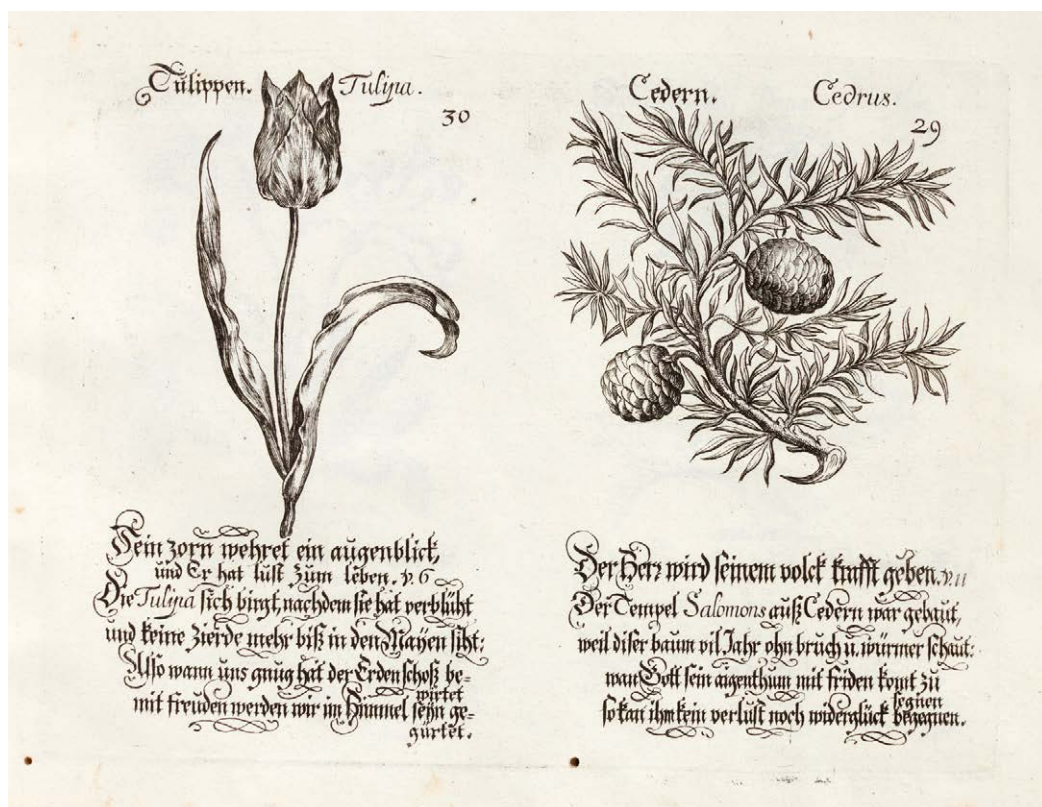 Tulippen. Tulipa.
30
Sein zorn wehret ein augenblick,
und Er hat lust zum leben. v. 6
Die Tulipa sich birgt, nachdem sie hat verblüht
und keine Zierde mehr biß in den Mayen siht:
Also wann uns gnug hat der Erden schoß be=
wirtet
mit freuden werden wir im Himmel seyn ge=
gürtet.
Cedern. Cedrus.
29
Der Herr wird seinem volck krafft geben. v. 11
Der Tempel Salomons auß Cedern war gebaut,
weil diser baum vil Jahr ohn bruch u. würmer schaut:
wann Gott sein aigenthum mit friden komt zu
segnen
so kan ihm kein verlust noch widerglück begegnen.